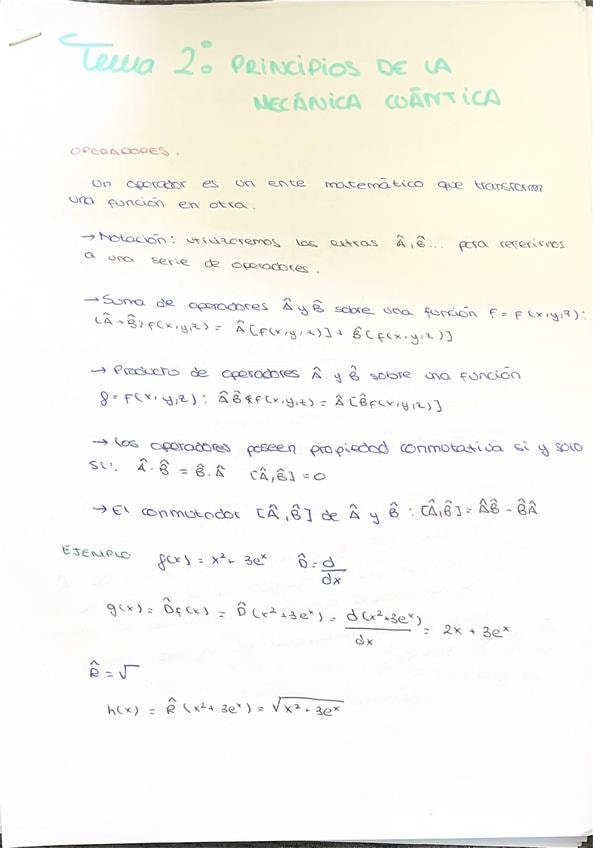 Tema 2: PRINCIPIOS DE LA
MECÁNICA CUÁNTICA
OPERADORES.
Un operador es un ente matemático que transforma
una función en otra.
→ Notación: utilizaremos las letras Â, B̂... para referirnos
a una serie de operadores.
→ Suma de operadores Â y B̂ sobre una función f = f(x,y,z):
(Â+B̂)f(x,y,z) = Â[f(x,y,z)] + B̂[f(x,y,z)]
→ Producto de operadores Â y B̂ sobre una función
f = f(x,y,z): ÂB̂f(x,y,z) = Â[B̂f(x,y,z)]
→ Los operadores poseen propiedad conmutativa si y solo
si: Â·B̂ = B̂·Â [Â,B̂] = 0
→ El conmutador [Â,B̂] de Â y B̂: [Â,B̂] = ÂB̂ - B̂Â
EJEMPLO f(x) = x² + 3eˣ D̂ = d/dx
g(x) = D̂f(x) = D̂(x²+3eˣ) = d(x²+3eˣ)/dx = 2x + 3eˣ
R̂ = √
h(x) = R̂(x²+3eˣ) = √(x²+3eˣ)